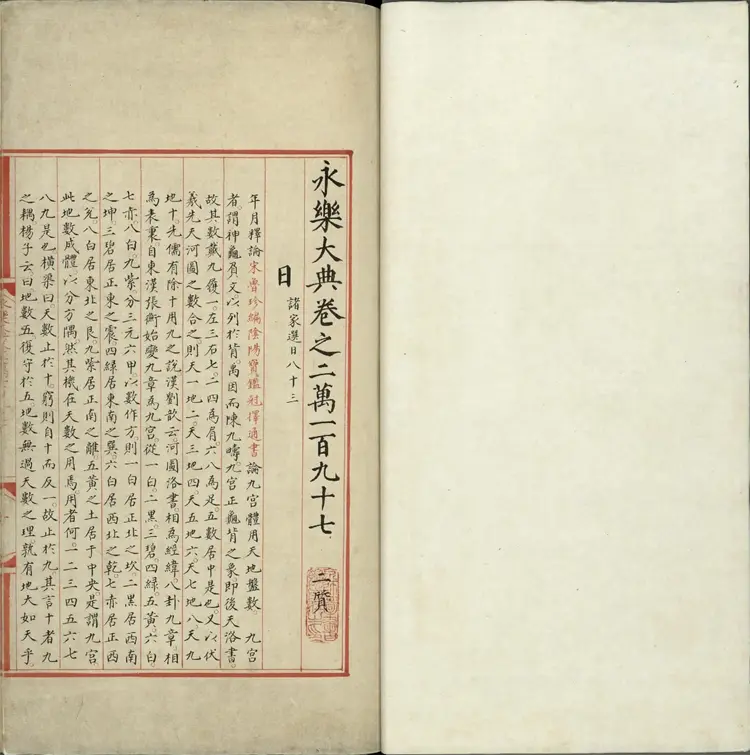 永樂大典卷之二萬一百九十七
二質
日
諸家選日八十三
年月釋論宋魯珍編陰陽寶鑑尅擇通書論九宮體用天地盤數。九宮
者。謂神龜負文以列於背。禹因而陳九疇。九宮正龜背之象。即後天洛書。
故其數戴九履一。左三右七。二四為肩。六八為足。五數居中是也。又以伏
羲先天河圖之數合之。則天一地二。天三地四。天五地六。天七地八。天九
地十。先儒有除十用九之說。漢劉歆云。河圖洛書。相為經緯。八卦九章。相
為表裏。自東漢張衡始變九章為九宮。從一白。二黑。三碧。四綠。五黃。六白。
七赤。八白。九紫。分三元六甲。以數作方。則一白居正北之坎。二黑居西南
之坤。三碧居正東之震。四綠居東南之巽。六白居西北之乾。七赤居正西
之兌。八白居東北之艮。九紫居正南之離。五黃之土居于中央。是謂九宮
此地數成體。以分方隅。然其機在天數之用焉。用者何。一二三四五六七
八九是也。橫梁曰。天數止於十。窮則自十而反一。故止於九。其言十者。九
之耦。楊子云。曰地數五。復守於五。地數無過天數之理。孰有地大如天乎。